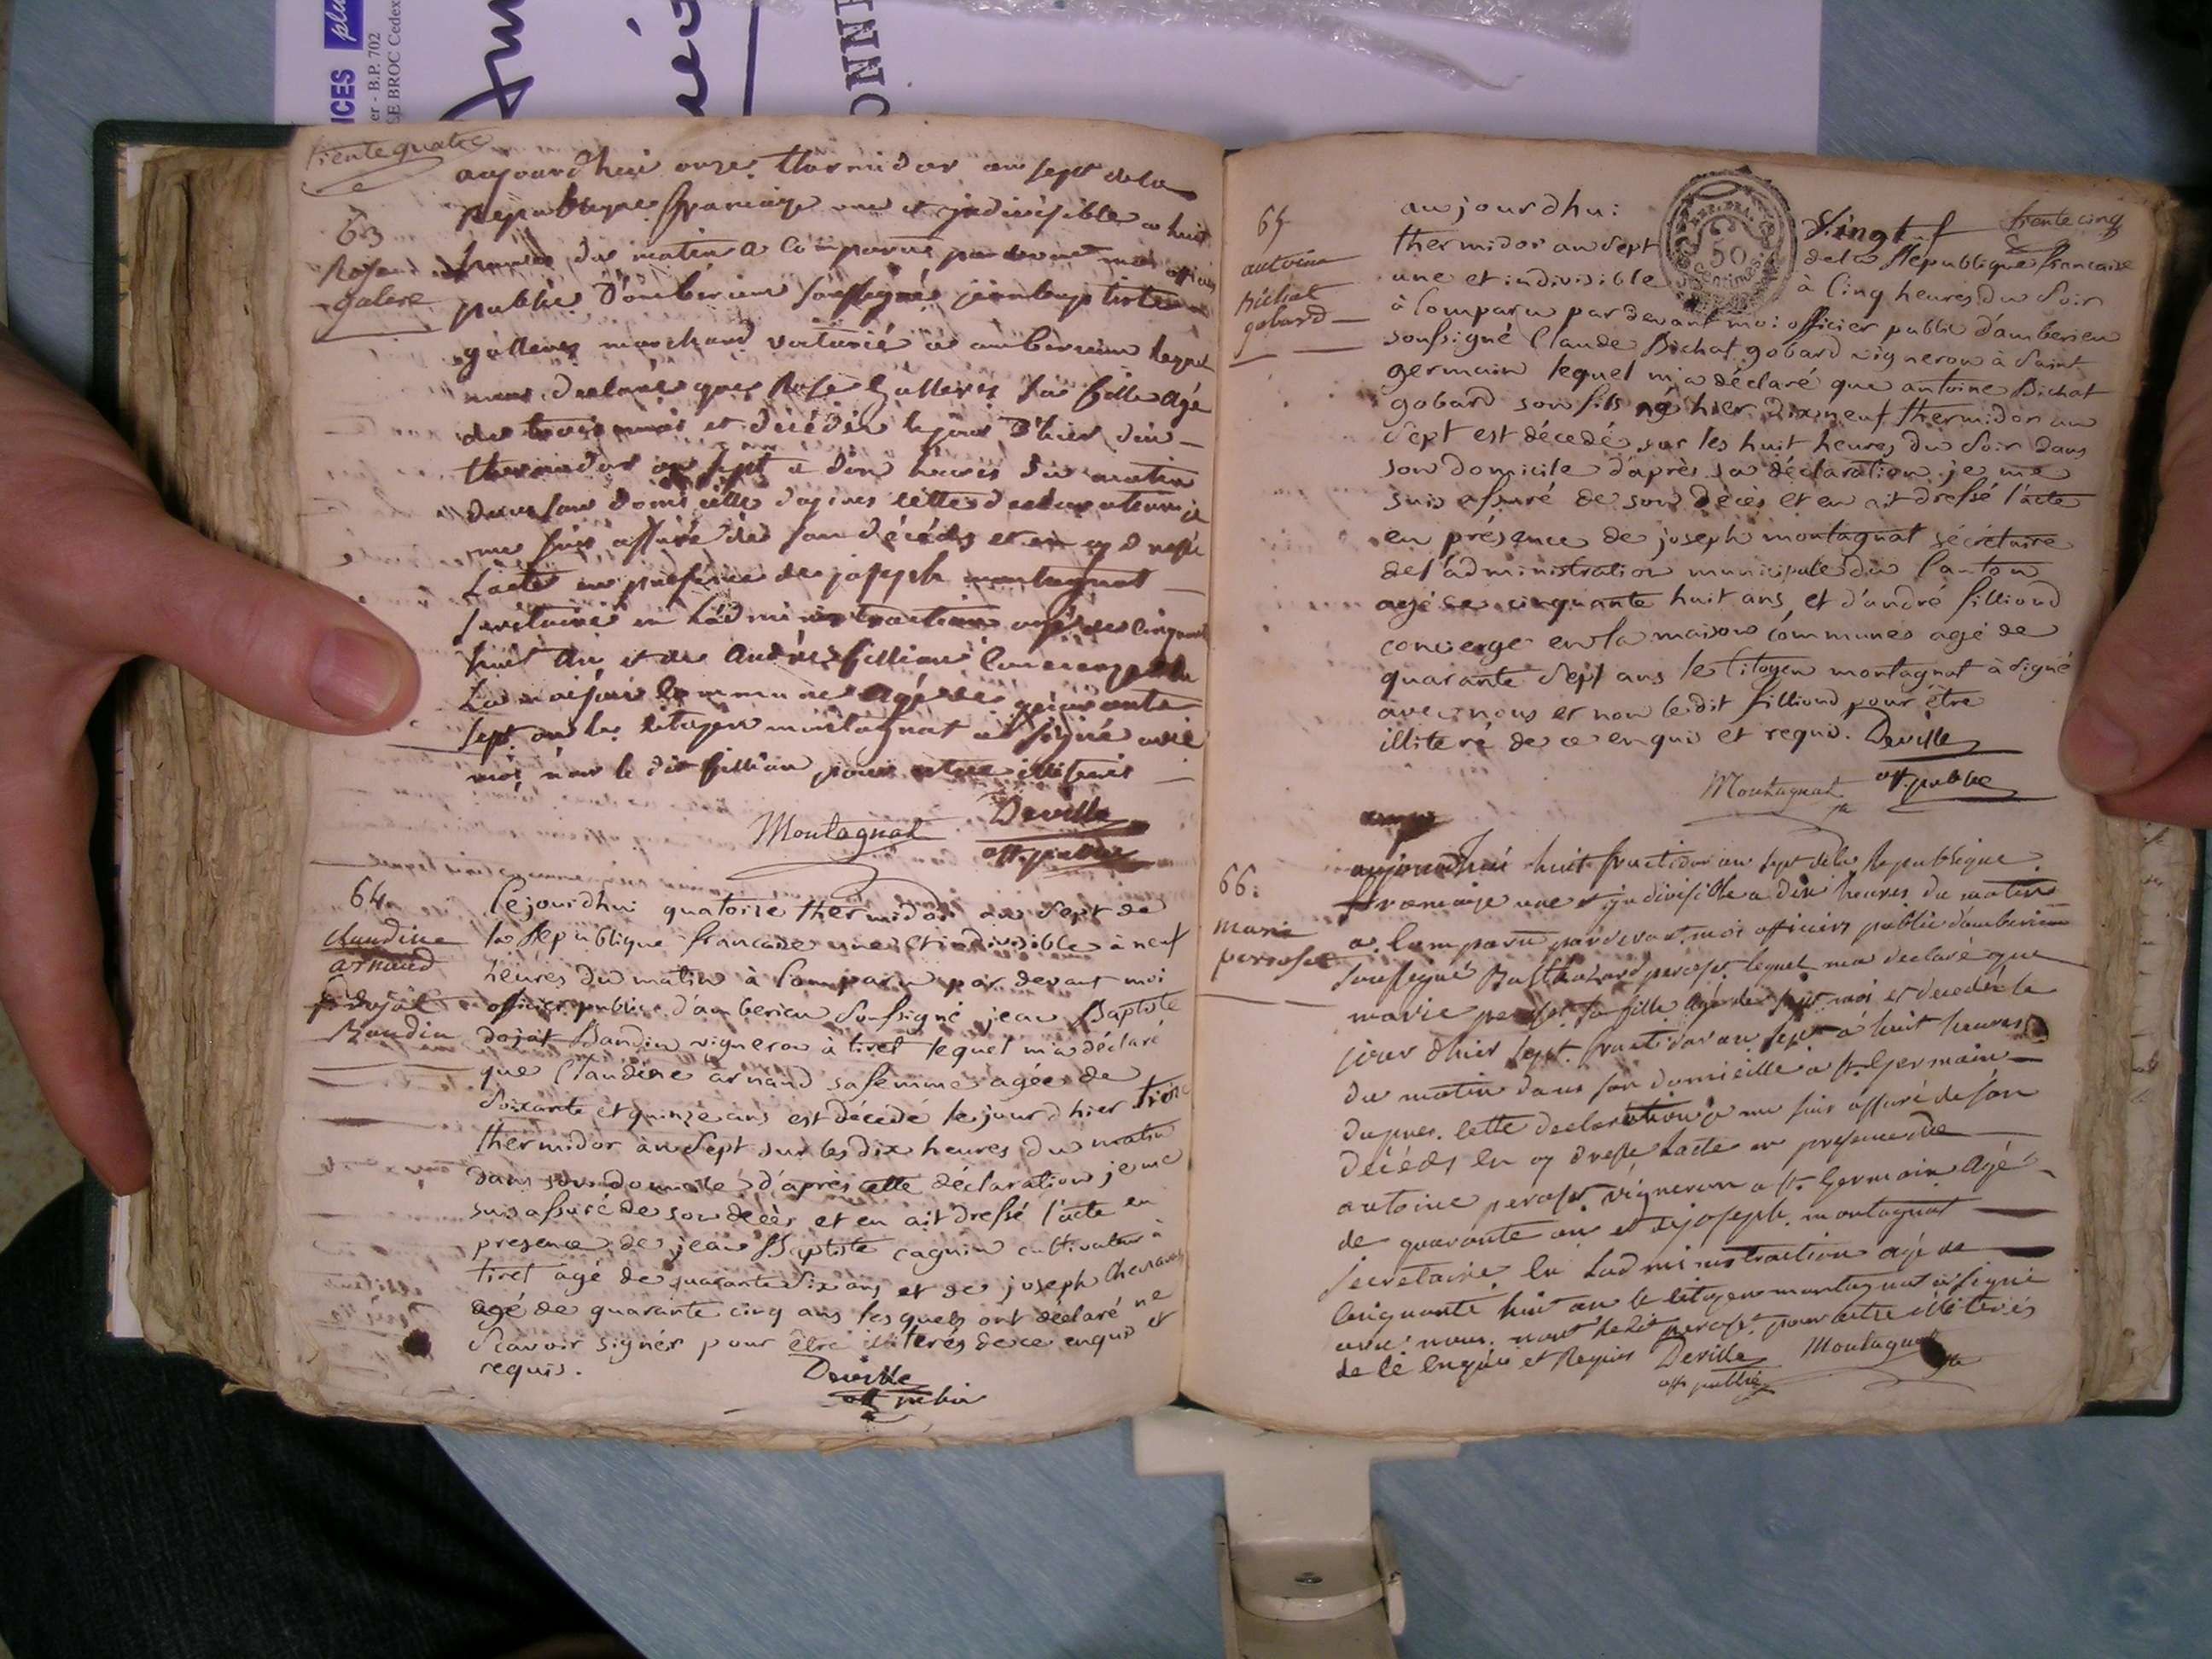 ICES plus
er - B.P. 702
LE BROC Cedex
trente quatre
63
Rose
galere
aujourdhui onze thermidor an sept de la
Republique francaise une et jndivisible a huit
heures du matin a Comparus par devant moi officier
public D'amberieu sousigné jean baptiste
galleres marchand voiturié a amberieu lequel
nous declares que Rose galleres sa fille agé
de trois mois et décédéa le jour D'hier dix
thermidor an sept a dix heures du matin
dans son domicille dapres cette declaration je
me suis assuré de son décéds et en ay dressé
Lacte en presence de joseph montagnat
secretaire en Ladministraction agé de cinquante
huit an et de André fillion Concierge de
La maison Commune agé de quarante
sept an le citoyen montagnat a signé avec
moi non le dit fillion pour etre illiterés
Montagnat Deville
off. public
64
claudine
arnaud
f. dojat
Baudin
Cejourdhui quatorze thermidor an Sept de
la République francaise une et indivisible à neuf
heures du matin à Comparu par devant moi
officier public d'amberieu Soussigné jean Baptiste
dojat Baudin vigneron à tiret lequel m'a déclaré
que Claudine arnaud sa femme agée de
Soixante et quinze ans est décédé le jour d'hier treize
thermidor an Sept sur les dix heures du matin
dans son domicile d'après cette déclaration je me
suis assuré de son décès et en ait dressé l'acte en
presence de jean Baptiste caguin cultivateur à
tiret agé de quarante Six ans et de joseph
agé de quarante cinq ans lesquels ont déclaré ne
Scavoir signer pour être illiterés de ce enquis et
requis.
Deville
off public
trente cinq
65
antoine
Bichat
gobard
REP. FRA.
50
Centimes
aujourdhui Vingt
thermidor an Sept de la République francaise
une et indivisible à Cinq heures du Soir
à Comparu par devant moi officier public d'amberieu
soussigné Claude Bichat gobard vigneron à Saint
germain lequel m'a déclaré que antoine Bichat
gobard son fils né hier dix neuf thermidor an
Sept est décedé sur les huit heures du Soir dans
son domicile d'après sa déclaration je me
suis assuré de son décès et en ait dressé l'acte
en présence de joseph montagnat sécrétaire
de l'administration municipale du Canton
agé de cinquante huit ans, et d'andré filliond
concierge en la maison communes agé de
quarante Sept ans le Citoyen montagnat à Signé
avec nous et non ledit filliond pour être
illiteré de ce enquis et requis. Deville
Montagnat off. public
66.
marie
peroset
aujourdhui huit fructidor an sept de la Republique
francaise une et jndivisible a dix heures du matin
a Comparu pardevant moi officier public damberieu
sousigné Balthazard peroset lequel ma declaré que
marie peroset sa fille agé de sept moi et decedée le
jour dhier sept fructidor an sept a huit heures
du matin dans son domicille a st. Germain
dapres cette declaration je me suis assuré de son
décéds en ay dressé Lacte en presence de
antoine peroset vigneron a st. Germain agé
de quarante an et de joseph montagnat
secretaire en Ladministraction agé de
Cinquante huit an le citoyen montagnat a signé
avec nous non ledit peroset pour etre illiterés
de ce enquis et Requis Deville Montagnat
off. public